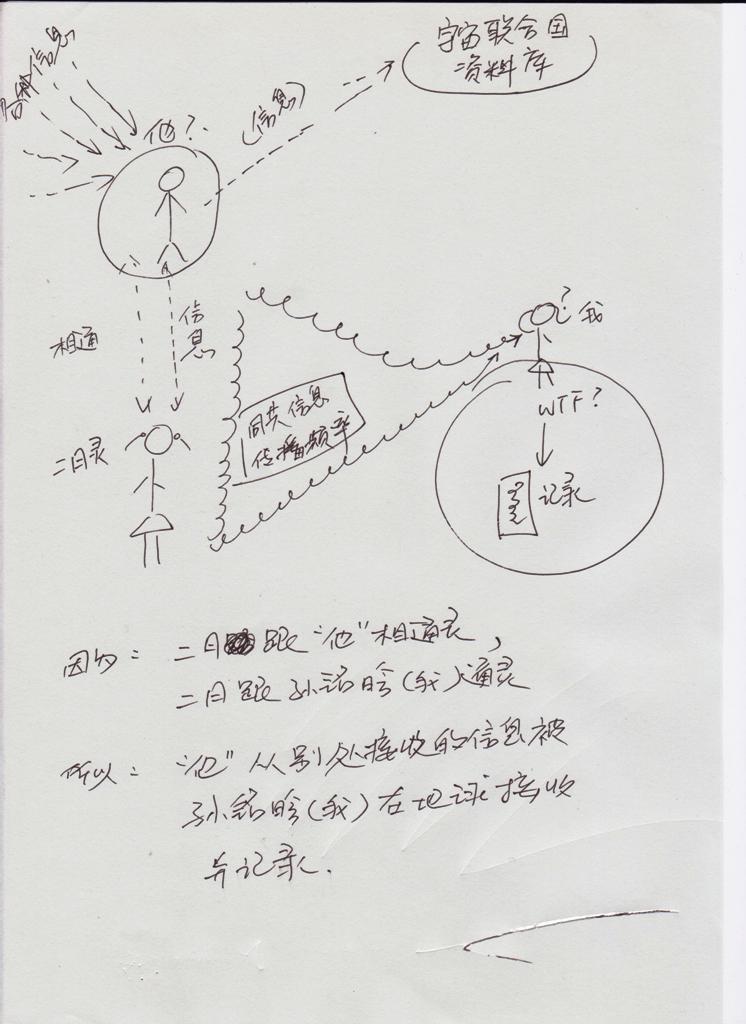 宇宙联合国
资料库
各种信息
他?
(信息)
相通
信息
?我
同共信息
传播频率
二月灵
WTF?
记录
因为: 二月 跟“他”相通灵,
二月跟孙诏晗(我)通灵
所以: “他”从别处接收的信息被
孙诏晗(我)在地球接收
并记录.